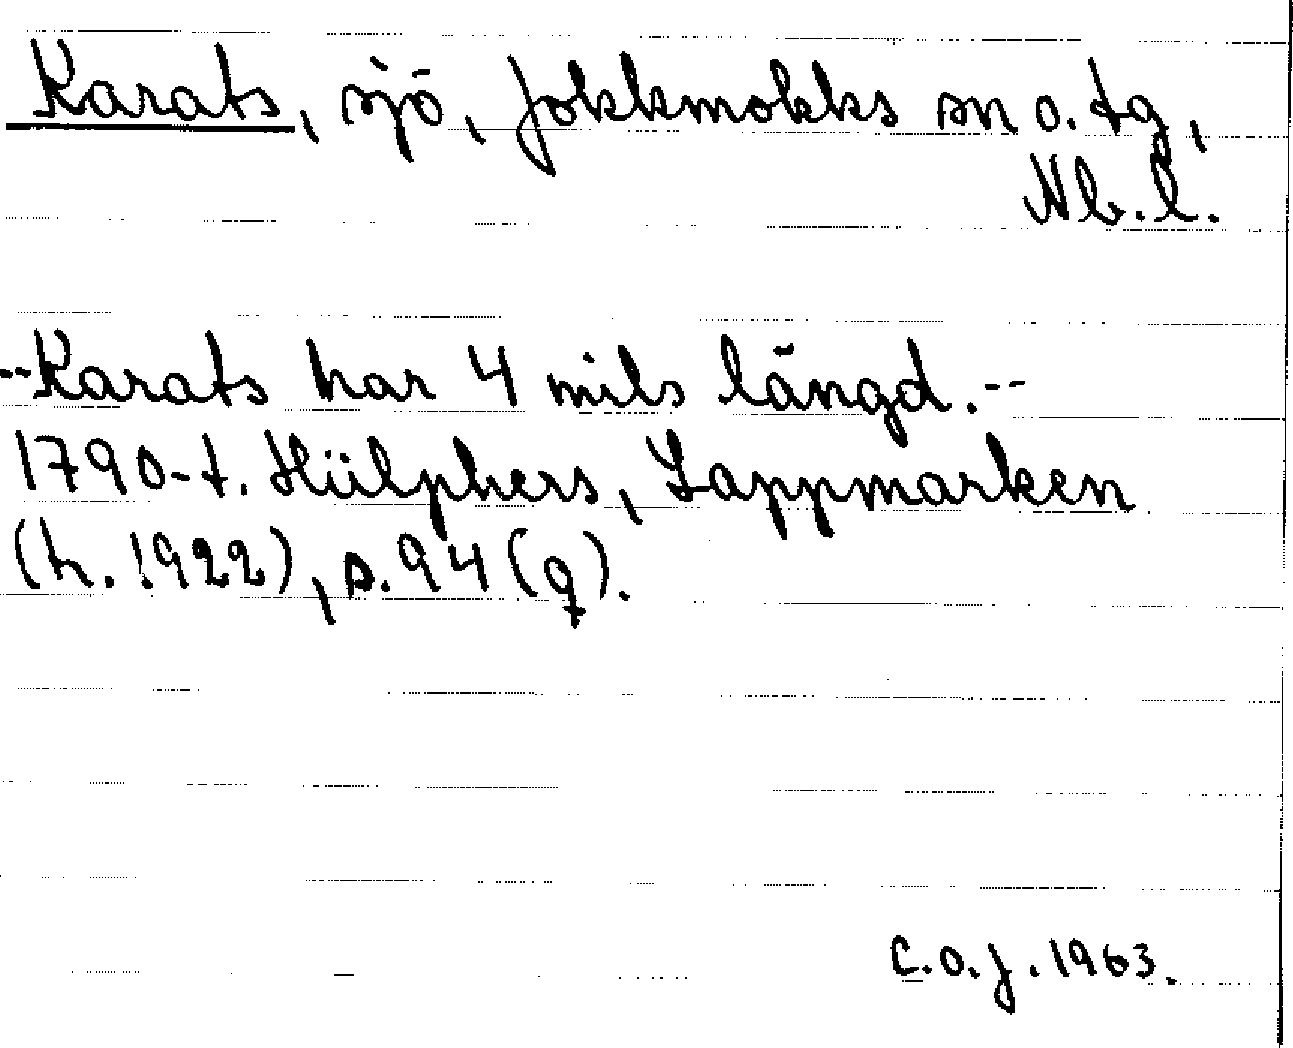 Karats, sjö, Jokkmokks sn o. tg,
Nb. l.
--Karats har 4 mils längd.--
1790-t. Hülphers, Lappmarken
(h. 1922), s. 94 (q).
C.O.J. 1963.